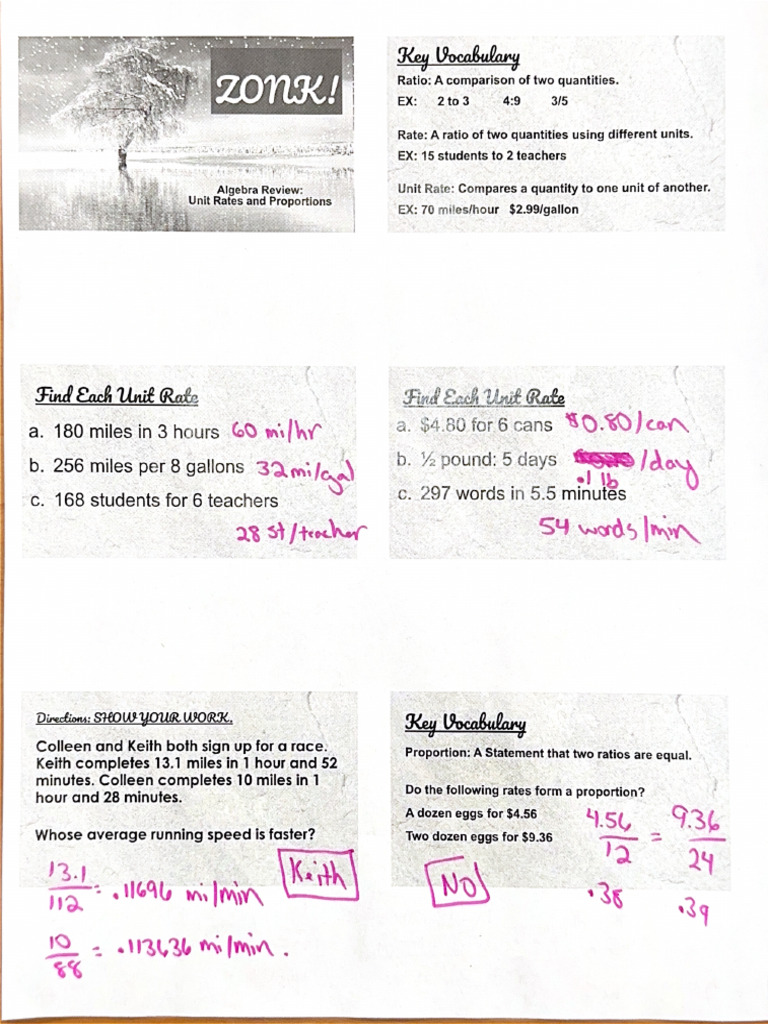 ZONK!
Algebra Review:
Unit Rates and Proportions
Key Vocabulary
Ratio: A comparison of two quantities.
EX: 2 to 3 4:9 3/5
Rate: A ratio of two quantities using different units.
EX: 15 students to 2 teachers
Unit Rate: Compares a quantity to one unit of another.
EX: 70 miles/hour $2.99/gallon
Find Each Unit Rate
a. 180 miles in 3 hours 60 mi/hr
b. 256 miles per 8 gallons 32 mi/gal
c. 168 students for 6 teachers
28 st/teacher
Find Each Unit Rate
a. $4.80 for 6 cans $0.80/can
b. ½ pound: 5 days /day
.1 lb
c. 297 words in 5.5 minutes
54 words/min
Directions: SHOW YOUR WORK.
Colleen and Keith both sign up for a race.
Keith completes 13.1 miles in 1 hour and 52
minutes. Colleen completes 10 miles in 1
hour and 28 minutes.
Whose average running speed is faster?
Keith
13.1/112 = .11696 mi/min
10/88 = .113636 mi/min.
Key Vocabulary
Proportion: A Statement that two ratios are equal.
Do the following rates form a proportion?
A dozen eggs for $4.56
Two dozen eggs for $9.36
4.56/12 = 9.36/24
NO
.38 .39